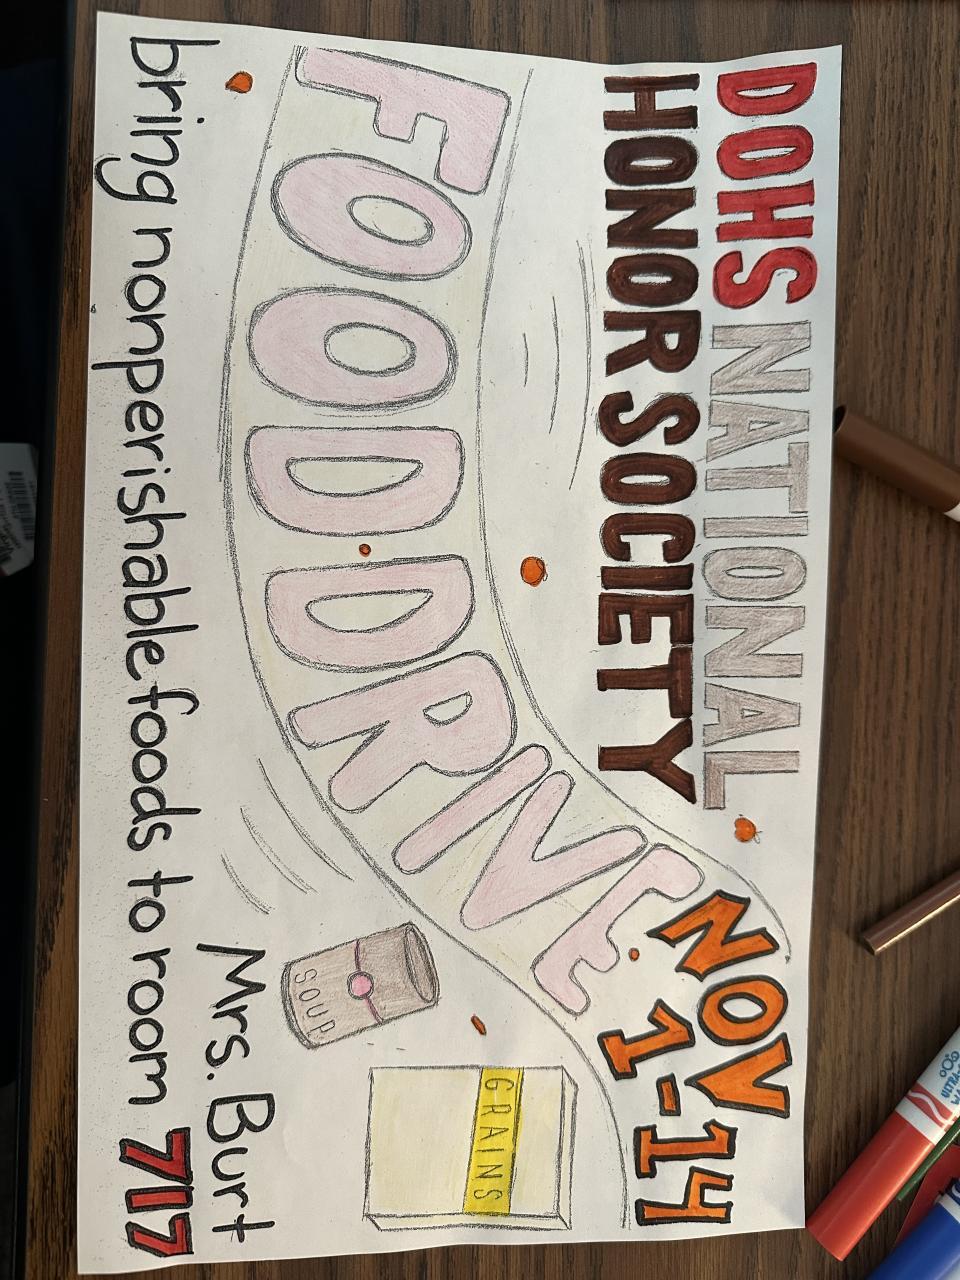 DOHS NATIONAL
HONOR SOCIETY
NOV
1-14
FOOD DRIVE
SOUP
GRAINS
Mrs. Burt
bring nonperishable foods to room 717